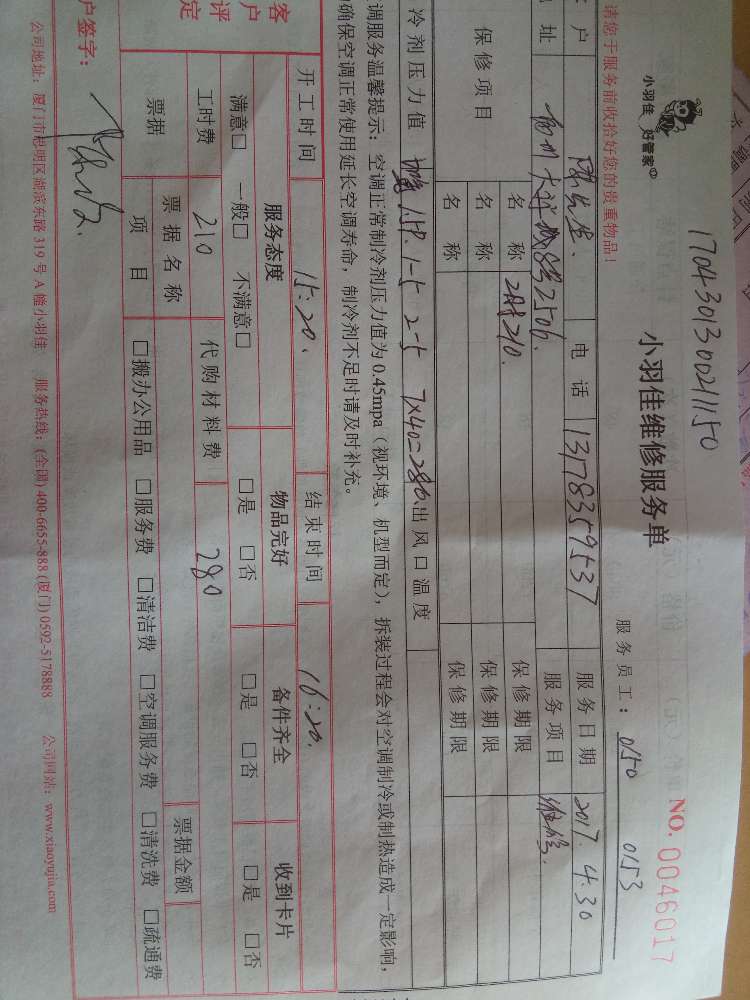 170430130021150
小羽佳 好管家
小羽佳维修服务单
NO. 0046017
请您于服务前收拾好您的贵重物品!
服务员工: 0150 0153
户 电话 13178359537 服务日期 2017.4.30
址 2506. 服务项目 维修.
保修项目
名称 210. 保修期限
名称 保修期限
名称 保修期限
冷剂压力值 1-5 2-5 7×40=280. 出风口温度
调服务温馨提示: 空调正常制冷剂压力值为 0.45mpa (视环境、机型而定), 拆装过程会对空调制冷或制热造成一定影响,
确保空调正常使用延长空调寿命, 制冷剂不足时请及时补充。
开工时间 15:20. 结束时间 16:20.
客户评定
服务态度 物品完好 备件齐全 收到卡片
满意□ 一般□ 不满意□ □是 □否 □是 □否 □是 □否
工时费 210 代购材料费 280
票据 票据名称 票据金额
项目 □搬办公用品 □服务费 □清洁费 □空调服务费 □清洗费 □疏通费
户签字:
公司地址: 厦门市思明区湖滨东路 319 号 A 幢小羽佳 服务热线: (全国) 400-6655-888 (厦门) 0592-5178888 公司网站: www.xiaoyujia.com